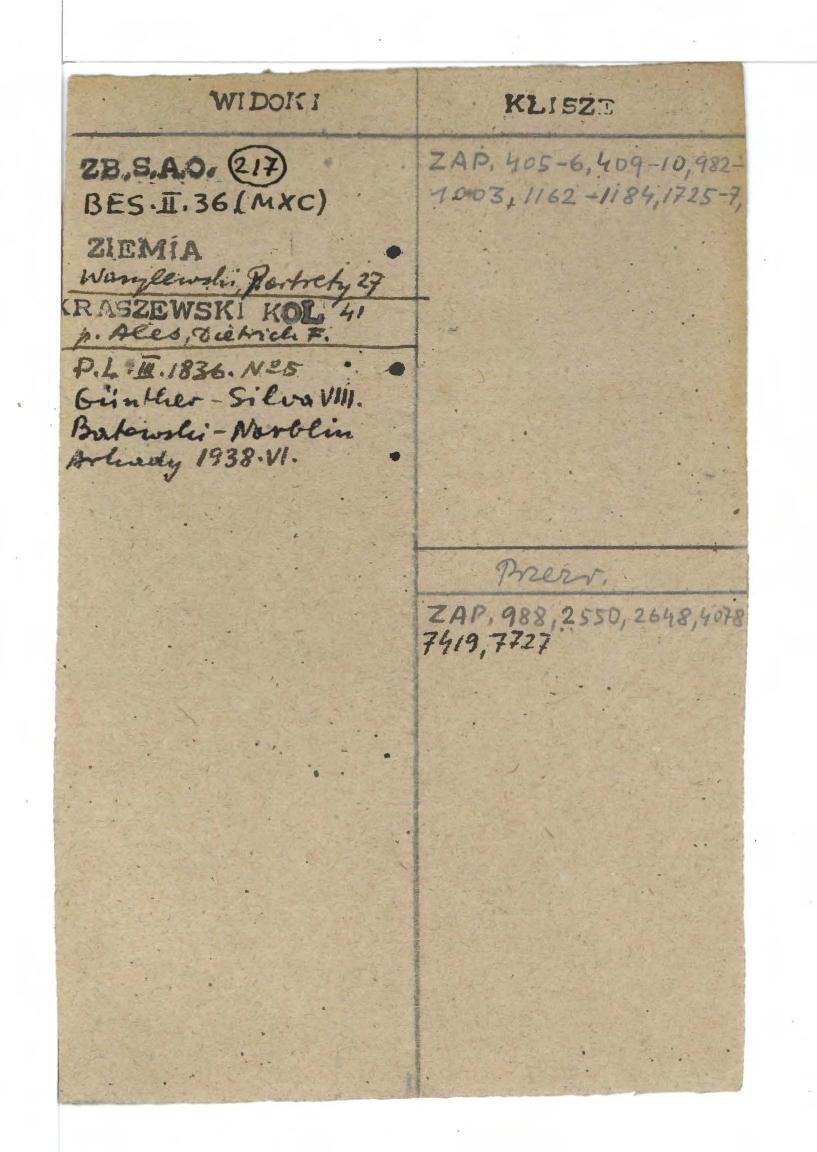 WIDOKI
ZB.S.A.O. 217
BES.II.36 (MXC)
ZIEMIA
Wasylewski, Portrety 27
KRASZEWSKI KOL 41
p. Ales, Dietrich F.
P.L.III.1836. No 5
Günther - Silva VIII.
Batowski - Norblin
Arkady 1938.VI.
KLISZE
ZAP. 405-6, 409-10, 982-
1003, 1162-1184, 1725-7,
Przezr.
ZAP. 988, 2550, 2648, 4078
7419, 7727